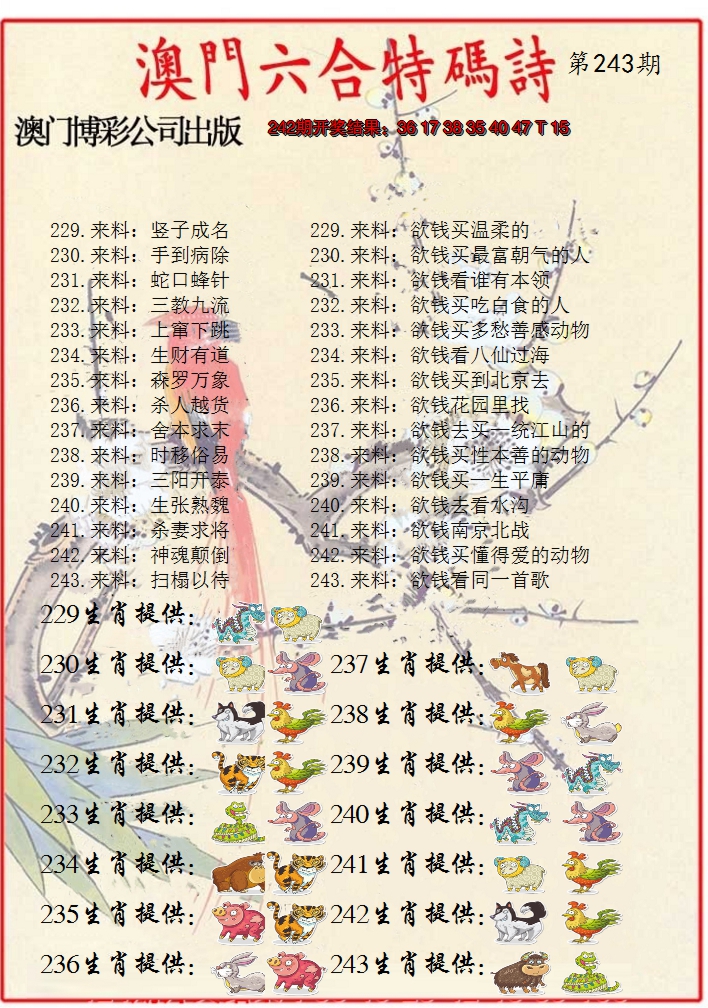 澳門六合特碼詩 第243期
澳门博彩公司出版 242期开奖结果：36 17 38 35 40 47 T 15
229.来料：竖子成名 229.来料：欲钱买温柔的
230.来料：手到病除 230.来料：欲钱买最富朝气的人
231.来料：蛇口蜂针 231.来料：欲钱看谁有本领
232.来料：三教九流 232.来料：欲钱买吃白食的人
233.来料：上窜下跳 233.来料：欲钱买多愁善感动物
234.来料：生财有道 234.来料：欲钱看八仙过海
235.来料：森罗万象 235.来料：欲钱买到北京去
236.来料：杀人越货 236.来料：欲钱花园里找
237.来料：舍本求末 237.来料：欲钱去买一统江山的
238.来料：时移俗易 238.来料：欲钱买性本善的动物
239.来料：三阳开泰 239.来料：欲钱买一生平庸
240.来料：生张熟魏 240.来料：欲钱去看水沟
241.来料：杀妻求将 241.来料：欲钱南京北战
242.来料：神魂颠倒 242.来料：欲钱买懂得爱的动物
243.来料：扫榻以待 243.来料：欲钱看同一首歌
229生肖提供：
230生肖提供： 237生肖提供：
231生肖提供： 238生肖提供：
232生肖提供： 239生肖提供：
233生肖提供： 240生肖提供：
234生肖提供： 241生肖提供：
235生肖提供： 242生肖提供：
236生肖提供： 243生肖提供：